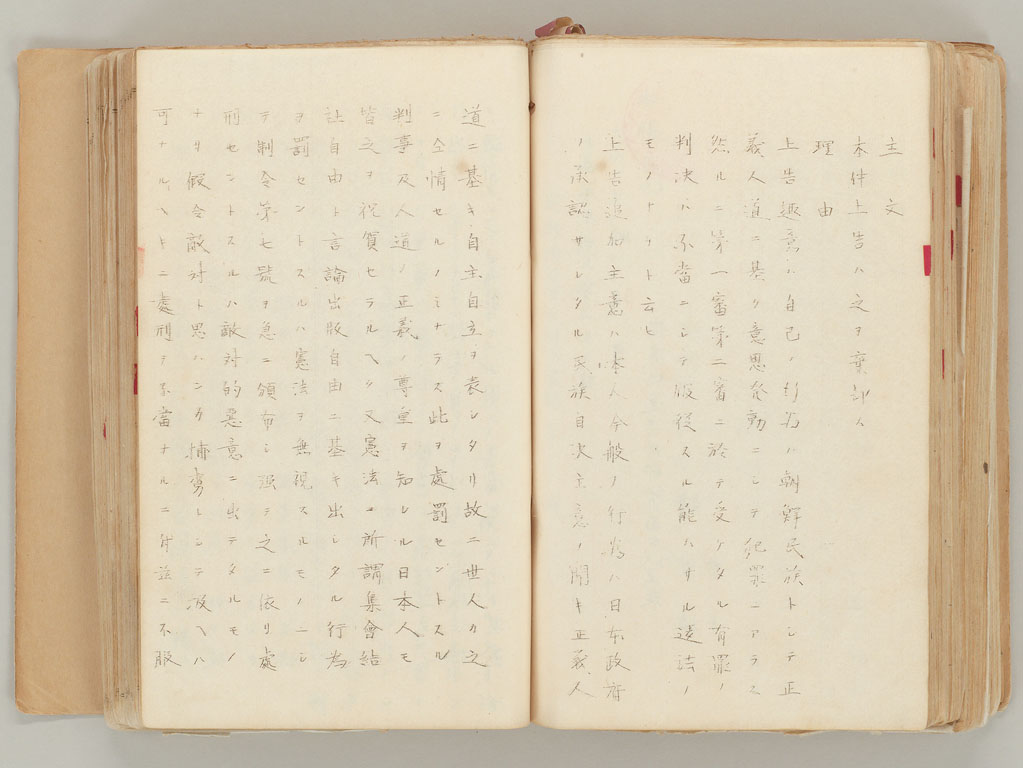 主文
本件上告ハ之ヲ棄却ス
理由
上告趣意ハ自己ノ行為ハ朝鮮民族トシテ正
義人道ニ基ク意思発動ニシテ犯罪ニアラス
然ルニ第一審第二審ニ於テ受ケタル有罪ノ
判決ハ不當ニシテ服從スル能ハサル違法ノ
モノナリト云ヒ
上告追加主意ハ本人今般ノ行為ハ日本政府
ノ承認サレタル民族自決主意ノ聞キ正義人
道ニ基キ自主自立ヲ表シタリ故ニ世人カ之
ニ仝情セルノミナラス此ヲ處罰セントスル
判事及人道ノ正義ノ尊重ヲ知レル日本人モ
皆之ヲ祝賀セラルヘク又憲法ニ所謂集會結
社自由ト言論出版自由ニ基キ出シタル行為
ヲ罰セントスルハ憲法ヲ無視スルモノニシ
テ制令第七號ヲ急ニ頒布シ強テ之ニ依リ處
刑セントスルハ敵対的惡意ニ出テタルモノ
ナリ假令敵対ト思ハンカ捕虜トシテ扱ヘハ
可ナルヘキニ處刑ヲ不當ナルニ付茲ニ不服